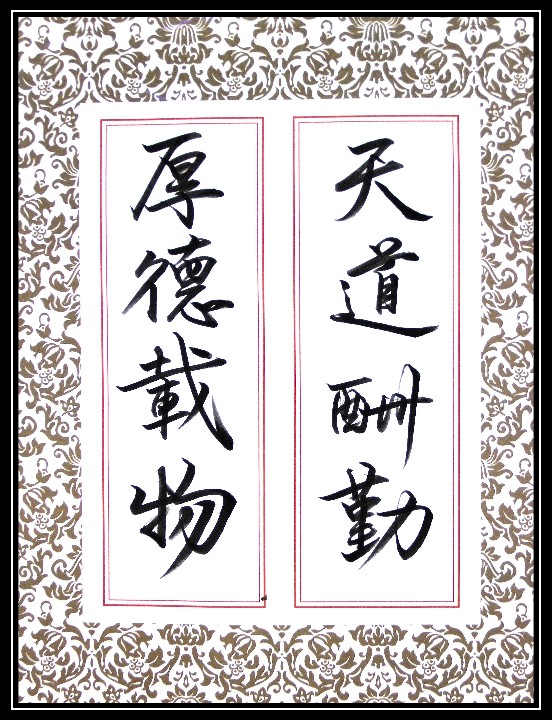 天道酬勤
厚德載物